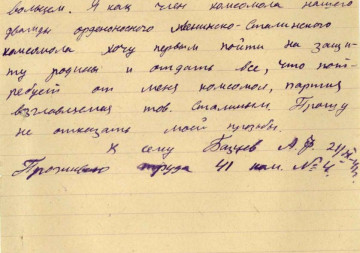 вольцем. Я как член комсомола нашего
дважды орденоносного Ленинско-Сталинского
комсомола хочу первым пойти на защи-
ту родины и отдать все, что пот-
ребует от меня комсомол, партия
возглавляемая тов. Сталиным. Прошу
не отказать моей просьбы.
К сему А.Ф. 21/
41 ком. № 4